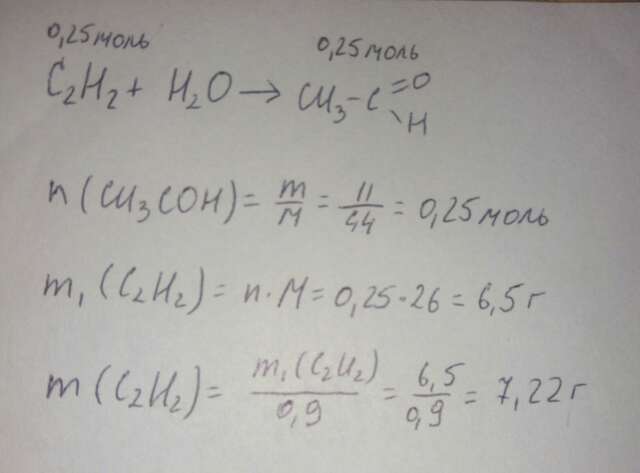 0,25 моль 0,25 моль
C₂H₂ + H₂O → CH₃-C =O -H
n (CH₃COH) = m/M = 11/44 = 0,25 моль
m₁ (C₂H₂) = n·M = 0,25·26 = 6,5 г
m (C₂H₂) = m₁(C₂H₂)/0,9 = 6,5/0,9 = 7,22 г